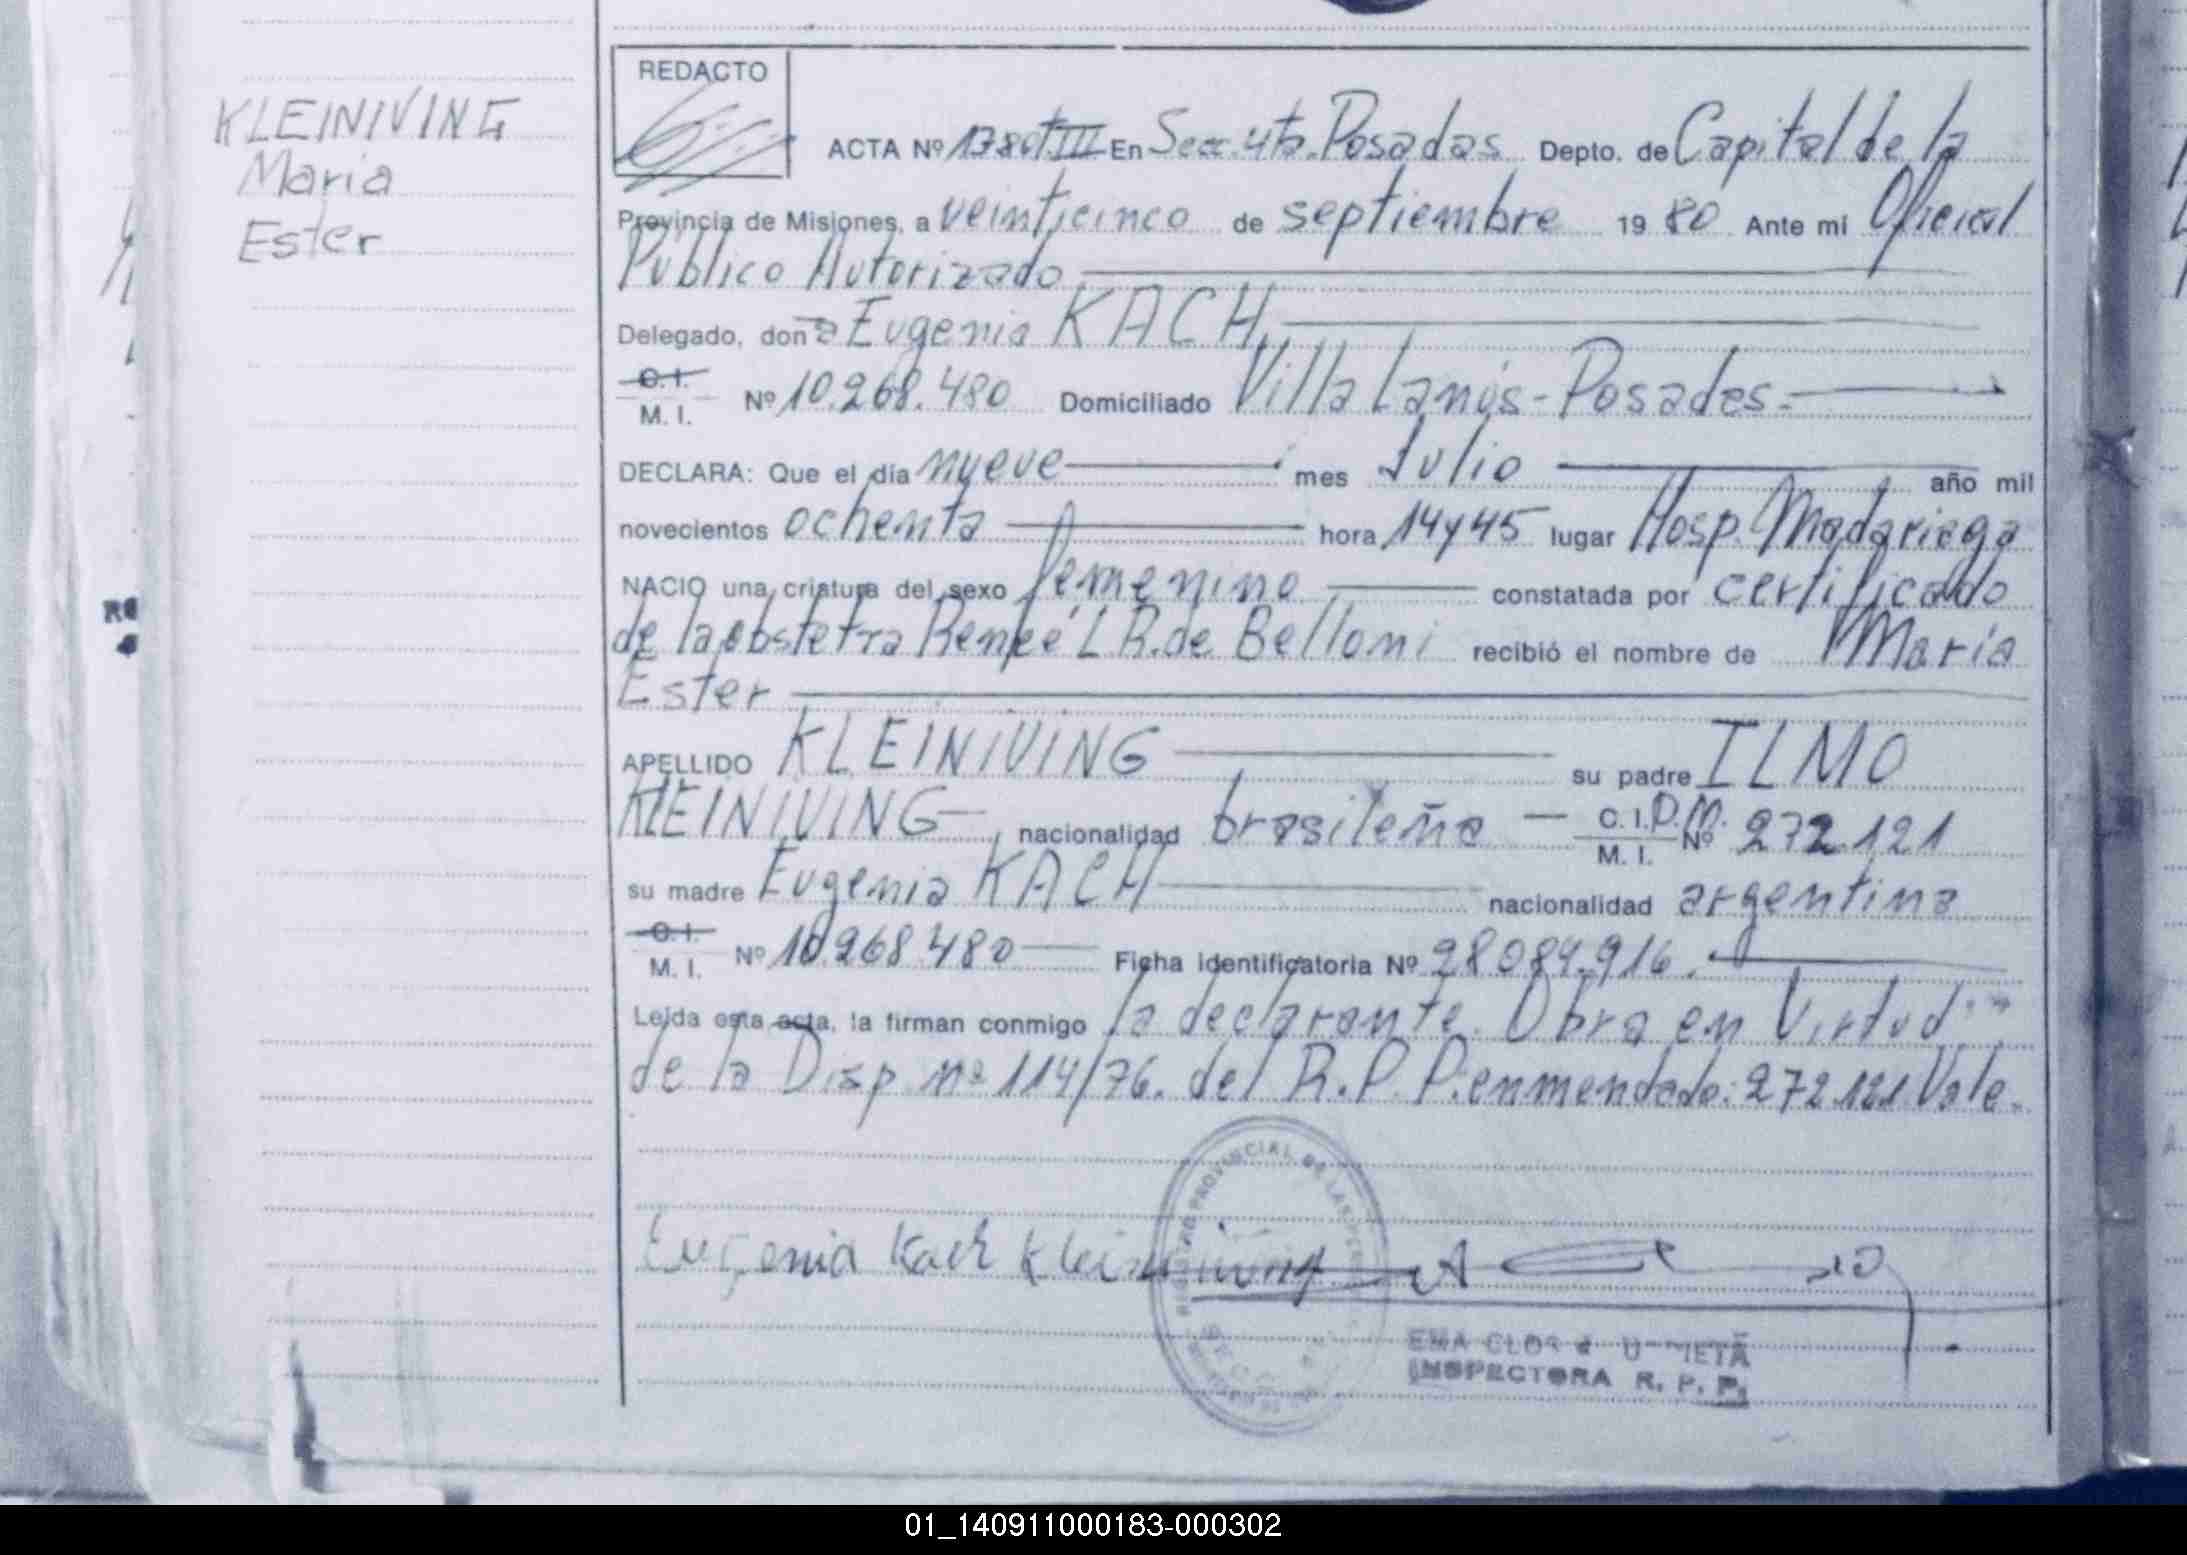 KLEINIVING
Maria
Ester
REDACTO
ACTA Nº 1380 T.III En Secc. 4ta. Posadas Depto. de Capital de la
Provincia de Misiones, a veinticinco de septiembre 1980 Ante mi Oficial
Público Autorizado
Delegado, don a Eugenia KACH,
C. I.
M. I. Nº 10.268.480 Domiciliado Villa Lanús - Posadas.
DECLARA: Que el día nueve mes Julio año mil
novecientos ochenta hora 14 y 45 lugar Hosp. Madariaga
NACIO una criatura del sexo femenino constatada por certificado
de la obstetra Renée L R. de Belloni recibió el nombre de María
Ester
APELLIDO KLEINIVING su padre ILMO
KLEINIVING, nacionalidad brasileña C. I. P.M.
M. I. Nº 272.121
su madre Eugenia KACH nacionalidad argentina
C. I.
M. I. Nº 10.268.480 Ficha identificatoria Nº 28.084.916.
Leída esta acta, la firman conmigo la declarante. Obra en Virtud
de la Disp. nº 114/76. del R.P.P. enmendado: 272.121 Vale.
Eugenia Kach Kleiniving
REGISTRO PROVINCIAL DE LAS
EMA
INSPECTORA R. P. P.
01_140911000183-000302